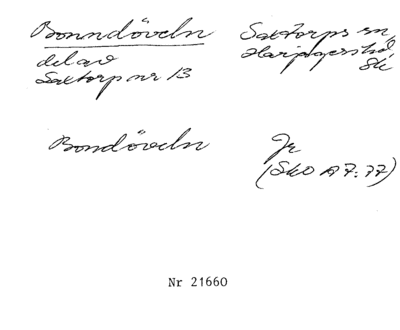 Bonndöveln
del av
Saxtorp nr 13
Saxtorps sn,
Harjagers hd,
Sk
Bondöveln
Jr
(SkO A 7:77)
Nr 21660